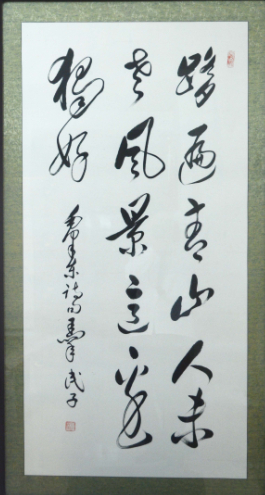 踏遍青山人未
老風景这边
独好
毛泽东诗句 民子